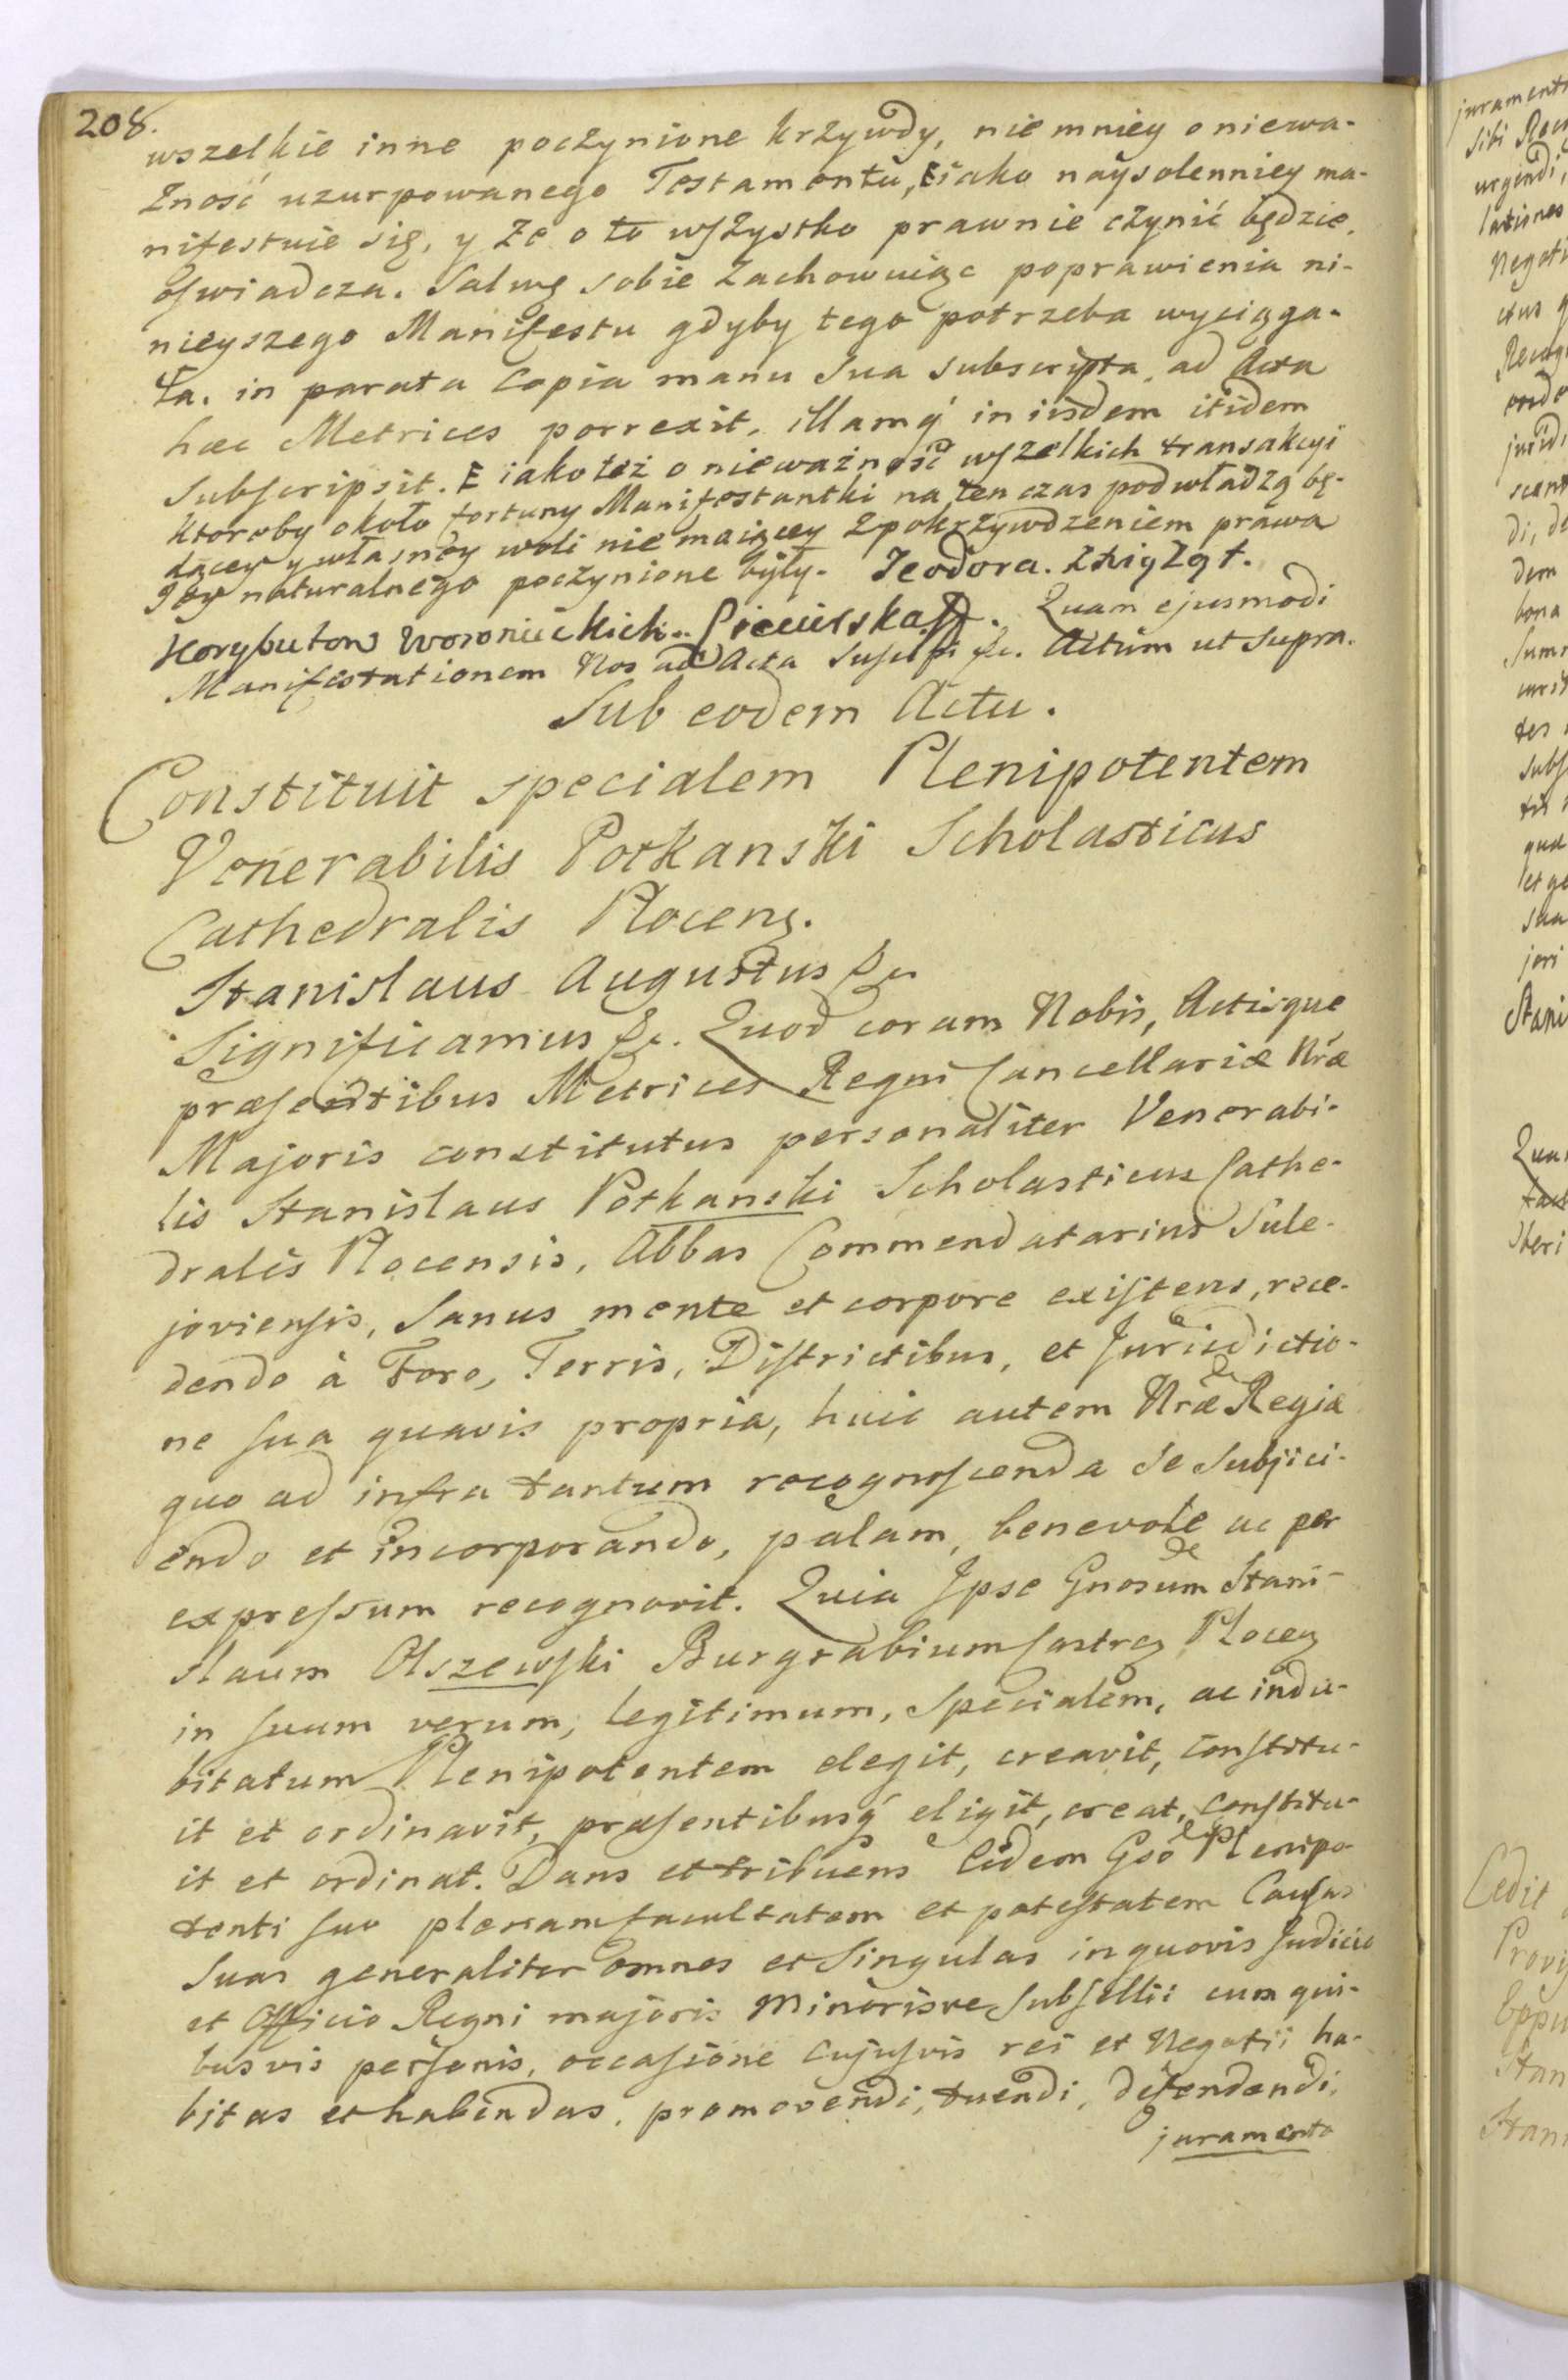 208.
wszelkie inne poczynione krzywdy, nie mniey o niewa-
żność uzurpowanego Testamentu, E iako naysolenniey ma-
nifestuie się, y że o to wszystko prawnie czynić będzie,
oswiadcza. Salwę sobie zachowuiąc poprawienia ni-
nieyszego Manifestu gdyby tego potrzeba wyciąga-
ła. in parata Copia manu Sua subscripta, ad Acta
hæc Metrices porrexit, illamq́ in iisdem itidem
Subscripsit. E iako też o nieważność wszelkich transakcyi
ktoreby około fortuny Manifestantki na ten czas pod władzą bę-
dącey y własney woli nie maiącey z pokrzywdzeniem prawa
Jey naturalnego poczynione były. Teodora. z Xiążąt.
Korybutow Woronieckich.. Quam ejusmodi
Manifestationem Nos ad Acta Suscepi &c. Actum ut Supra.
Sub eodem Actu.
Constituit specialem Plenipotentem
Venerabilis Potkanski Scholasticus
Cathedralis Plocens.
Stanislaus Augustus &c.
Significamus &c. Quod coram Nobis, Actisque
præsentibus Metrices Regni Cancellariæ Nræ
Majoris constitutus personaliter Venerabi-
lis Stanislaus Potkanski Scholasticus Cathe-
dralis Plocensis, Abbas Commendatarius Sule-
joviensis, Sanus mente et corpore existens, rece-
dendo à Foro, Terris, Districtibus, et Jurisdictio-
ne sua quavis propria, huic autem Nræ Regiæ
quo ad infra tantum recognoscenda se subjici-
endo et incorporando, palam, benevole ac per
expressum recognovit. Quia Ipse Gnosum Stani-
slaum Olszewski Burgrabium Castren Plocen
in suum verum, legitimum, specialem, ac indu-
bitatum Plenipotentem elegit, creavit, constitu-
it et ordinavit, præsentibusq́ eligit, creat, constitu-
it et ordinat. Dans et tribuens Eidem Gso Plenipo-
tenti suo plenam facultatem et potestatem Causas
Suas generaliter omnes et Singulas in quovis Judicio
et Officio Regni majoris Minorisve Subsellii cum qui-
busvis personis, occasione cujusvis rei et Negotii ha-
bitas et habendas, promovendi, tuendi, defendendi,
juramento